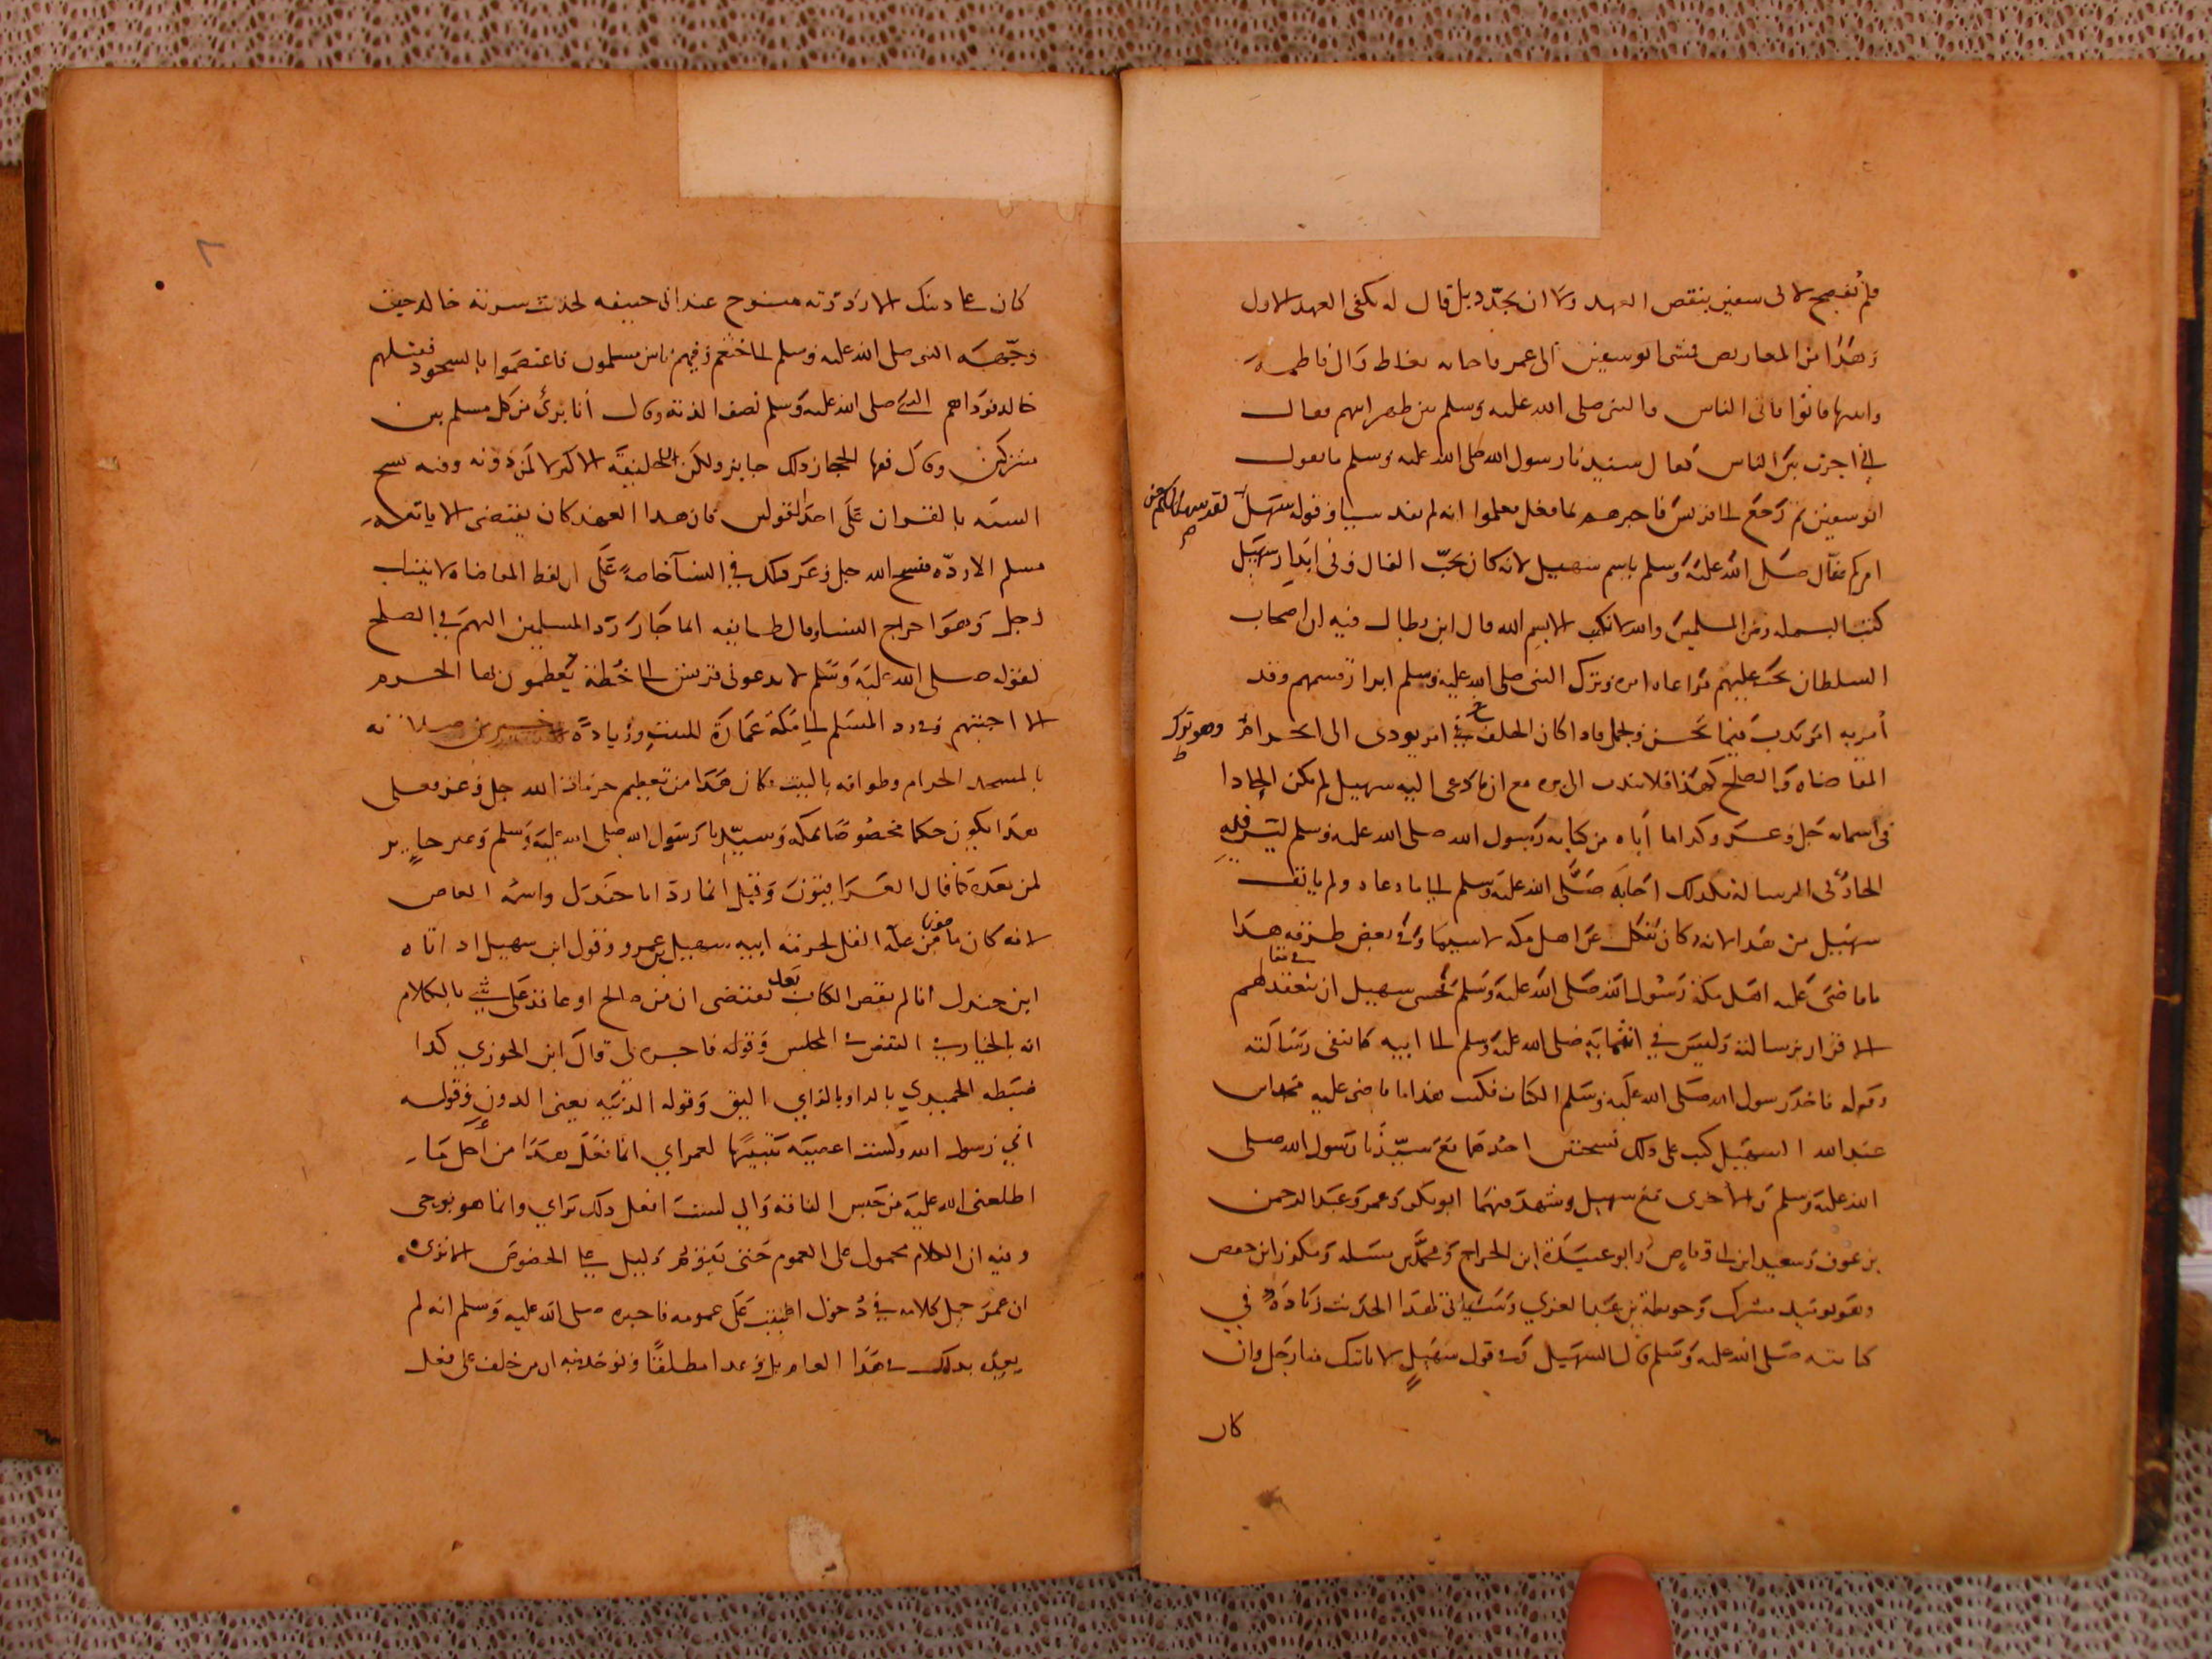 فلم يفصح لابى سفين بنقص العهد ولا ان يجدد بل قال له يكفى العهد الاول
وهذا من المعاريض فمشى ابو سفين الى عمر فاجابه بغلاظ وال فاطمة
وابنها فاتوا فاتى الناس والنبى صلى الله عليه وسلم بين ظهرانيهم فقال
انى اجرت بين الناس فقال سيدنا رسول الله صلى الله عليه وسلم ما يقول
ابو سفين ثم رجع الى قريش فاخبرهم بما فعل فعلموا انه لم يفد سيا وقوله سهل
لقد سهل لكم من
امركم تفال صلى الله عليه وسلم باسم سهيل لانه كان يحب الفال وفى ابتداء سهيل
كتب البسملة ومن المسلمين والله لا نكتب الا بسم الله قال ابن بطال فيه ان اصحاب
السلطان يجب عليهم مراعاة امره وترك النبى صلى الله عليه وسلم ابرار قسمهم وقد
أمر به امر ندب فيما يحسن ويجمل فاذا كان الحلف فى امر يودى الى انخرام
وهو ترك
المقاضاة والصلح كهذا فلا يندب الى بره مع ان ما دعى اليه سهيل لم يكن الحادا
فى اسمائه جل وعز وكذا ما أباه من كتابه رسول الله صلى الله عليه وسلم ليس فيه
الحاد فى الرسالة فلذلك اجابه صلى الله عليه وسلم الى ما دعاه ولم يانف
سهيل من هذا الا انه كان متكلما عن اهل مكة لاسيما وفى بعض طرقه هذا
ما قاضى عليه اهل مكة رسول الله صلى الله عليه وسلم فخشى سهيل ان ينعقد لهم
الاقرار برسالته وليس فى انتمائه صلى الله عليه وسلم الى ابيه ما ينفى رسالته
وقوله فاخذ رسول الله صلى الله عليه وسلم الكتاب فكتب هذا ما قاضى عليه محمد بن
عبد الله السهيلى كتب على ذلك نسختين احدهما مع سيدنا رسول الله صلى
الله عليه وسلم والأخرى مع سهيل وشهد فيهما ابو بكر وعمر وعبد الرحمن
بن عوف وسعد ابن ابى وقاص وابو عبيدة ابن الجراح ومحمد بن مسلمة ومكرز ابن حفص
وهو يومئذ مشرك وحويطب بن عبد العزى وستاتى لهذا الحديث زيادة فى
كتابته صلى الله عليه وسلم قال السهيلى وفى قول سهيل لا ياتيك منا رجل وان
كان
كان على دينك الا رددته منسوخ عند ابى حنيفه لحديث سرية خالد حين
وجهه النبى صلى الله عليه وسلم الى خثعم وفيهم ناس مسلمون فاعتصموا بالسجود فقتلهم
خالد فوداهم النبى صلى الله عليه وسلم نصف الدية وقال أنا برئ من كل مسلم بين
مشركين وقال فقها الحجاز ذلك جايز ولكن للخليفة الاكبر لا لمن دونه وفيه نسخ
السنه بالقران على احد القولين فان هذا العهد كان يقتضى الا ياتيه
مسلم الا رده فنسخ الله جل وعز ذلك فى النساء خاصة على ان لفظ المقاضاة لا ينتاب
رجل وهو اخراج النساء وقال طايفه انما جاز رد المسلمين اليهم فى الصلح
لقوله صلى الله عليه وسلم لا تدعونى قريش الى خطة يعظمون بها الحرم
الا اجبتهم وفى رد المسلم الى مكة عمارة للبيت وزيادة خير من صلاته
بالمسجد الحرام وطوافه بالبيت فكان هذا من تعظيم حرمات الله جل وعز فعلى
هذا يكون حكما مخصوصا بمكة وسيدنا رسول الله صلى الله عليه وسلم وغير جايز
لمن بعده كما قال العراقيون وقيل انما رد ابا جندل واسمه العاص
لانه كان مأمونا من عليه القتل لحرمة ابيه سهيل بن عمرو وقول ابن سهيل اذ اتاه
ابن جندل انا لم نقض الكتاب بعد يقتضى ان من صالح او عاقد على شىء بالكلام
انه بالخيار فى النقض فى المجلس وقوله فاجزه لى قال ابن الجوزى كذا
ضبطه الحميدى بالراء وبالزاى اليق وقوله الدنية يعنى الدون وقوله
انى رسول الله ولست اعصيه تنبيها لعمر اى انما نفعل هذا من أجل ما
اطلعنى الله عليه من حبس الناقة وانى لست افعل ذلك براى وانما هو بوحى
وفيه ان الكلام محمول على العموم حتى يقوم دليل على الخصوص الا ترى
ان عمر حمل كلامه فى دخول البيت على عمومه فاخبره صلى الله عليه وسلم انه لم
يعد بذلك فى هذا العام بل وعد مطلقا ويوخذ منه ان من حلف على فعل